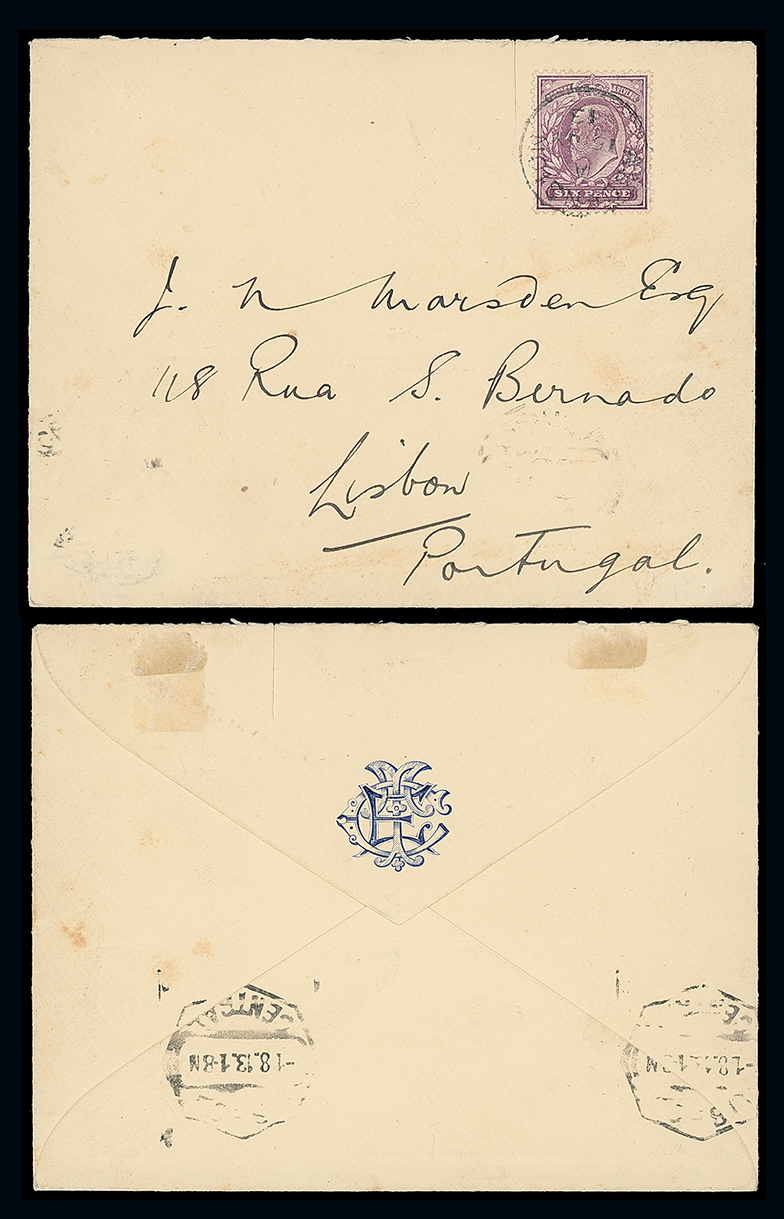 SIX PENCE
J. N Marsden Esq
118 Rua S. Bernado
Lisbon
Portugal.
CENTRAL
-1.8.13.1-8M
CENTRAL